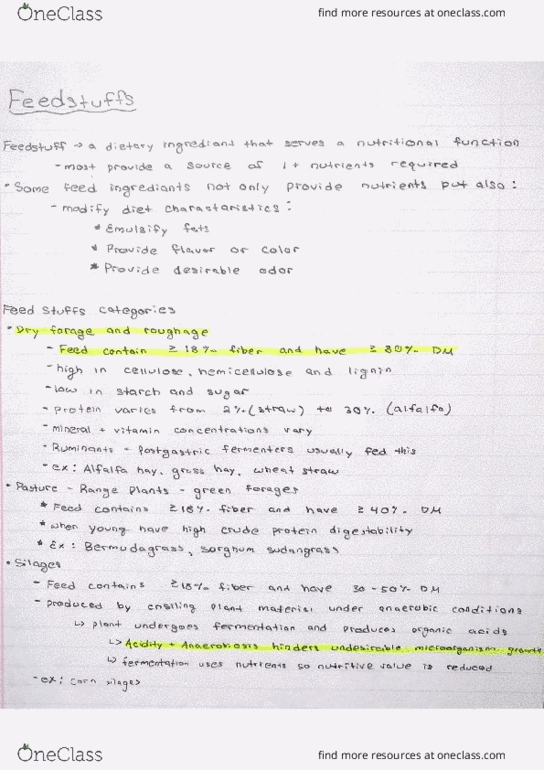 OneClass
find more resources at oneclass.com
Feedstuffs
Feedstuff → a dietary ingrediant that serves a nutritional function
- most provide a source of 1+ nutrients required
• Some feed ingrediants not only provide nutrients but also:
- modify diet charastaristics:
* Emulsify fats
* Provide flavor or color
* Provide desirable odor
Feed Stuffs categories
• Dry forage and roughage
- Feed contain ≥ 18% fiber and have ≥ 80% DM
- high in cellulose, hemicellulose and lignin
- low in starch and sugar
- protein varies from 2% (straw) to 30% (alfalfa)
- mineral + vitamin concentrations vary
- Ruminants - Postgastric fermenters usually fed this
- ex: Alfalfa hay, grass hay, wheat straw
• Pasture - Range Plants - green forages
* Feed contains ≥18% fiber and have ≥ 40% DM
* when young have high crude protein digestability
* Ex: Bermudagrass, sorghum sudangrass
• Silages
- Feed contains ≥18% fiber and have 30-50% DM
- produced by ensiling plant material under anaerobic conditions
↳ plant undergoes fermentation and produces organic acids
↳ Acidity + Anaerobiosis hinders undesirable microorganism growth
↳ fermentation uses nutrients so nutritive value is reduced
- ex: corn silages
OneClass
find more resources at oneclass.com